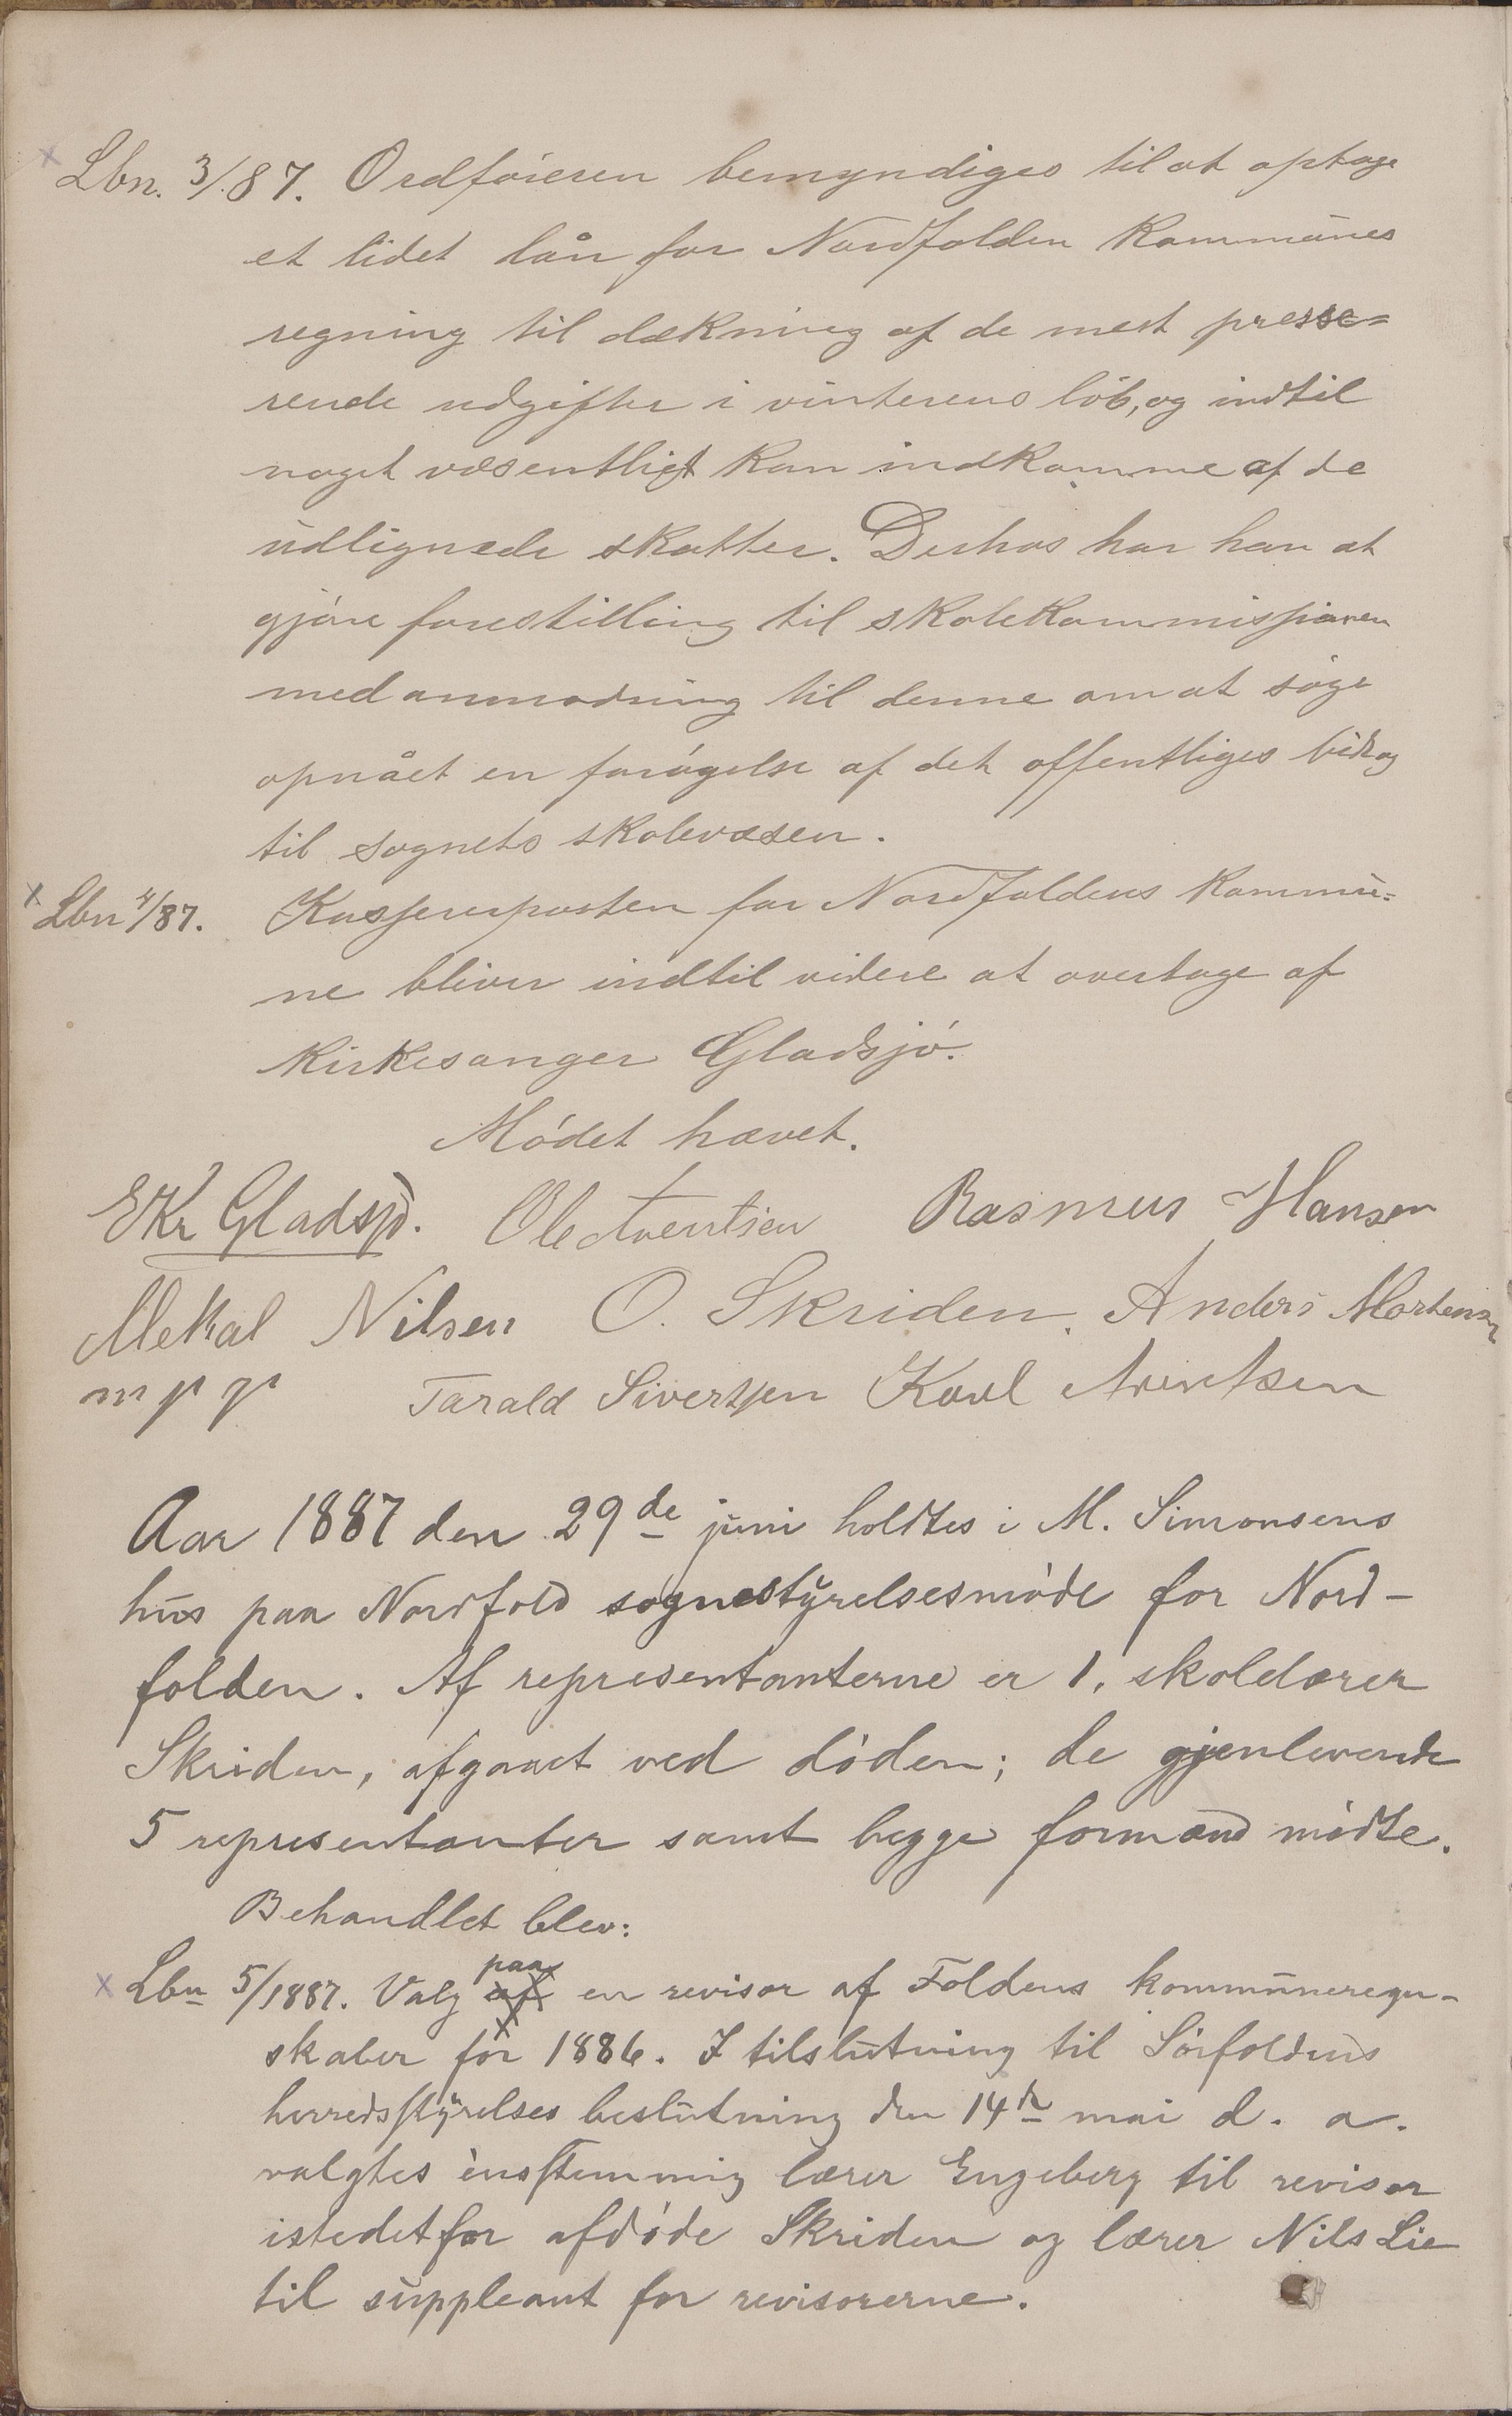 Lbn. 3/87. Ordføreren bemyndiges til at optage
et lidet lån for Nordfolden Kommunes
regning til dækning af de mest presse=
rende udgifter i vinterens løb, og indtil
noget væsentligt kan indkomme af de
udlignede skatter. Derhos har han at
gjøre forestilling til skolekommissionen
med anmodning til denne om at søge
opnået en forøgelse af det offentliges bidrag
til sognets skolevæsen.
Lbn 4/87. Kassererposten for Nordfoldens Kommu=
ne bliver indtil videre at overtage af
Kirkesanger Gladsjø.
Mødet hævet.
EKr Gladsjø. Ole Arentsen Rasmus Hansen
Mekal Nilsen O. Skriden. Anders Mortensen
m p p Tarald Sivertsen Karl Arentsen
Aar 1887 den 29de juni holdtes i M. Simonsens
hus paa Nordfold sognestyrelsesmøde for Nord-
folden. Af representanterne er 1, skolelærer
Skriden, afgaaet ved døden; de gjenlevende
5 representanter samt begge formænd mødte.
Behandlet blev:
Lbn 5/1887. Valg af paa en revisor af Foldens kommuneregn-
skaber for 1886. I tilslutning til Sørfoldens
herredsstyrelses beslutning den 14de mai d. a.
valgtes énstemmig lærer Engeberg til revisor
istedetfor afdøde Skriden og lærer Nils Lie
til suppleant for revisorerne.